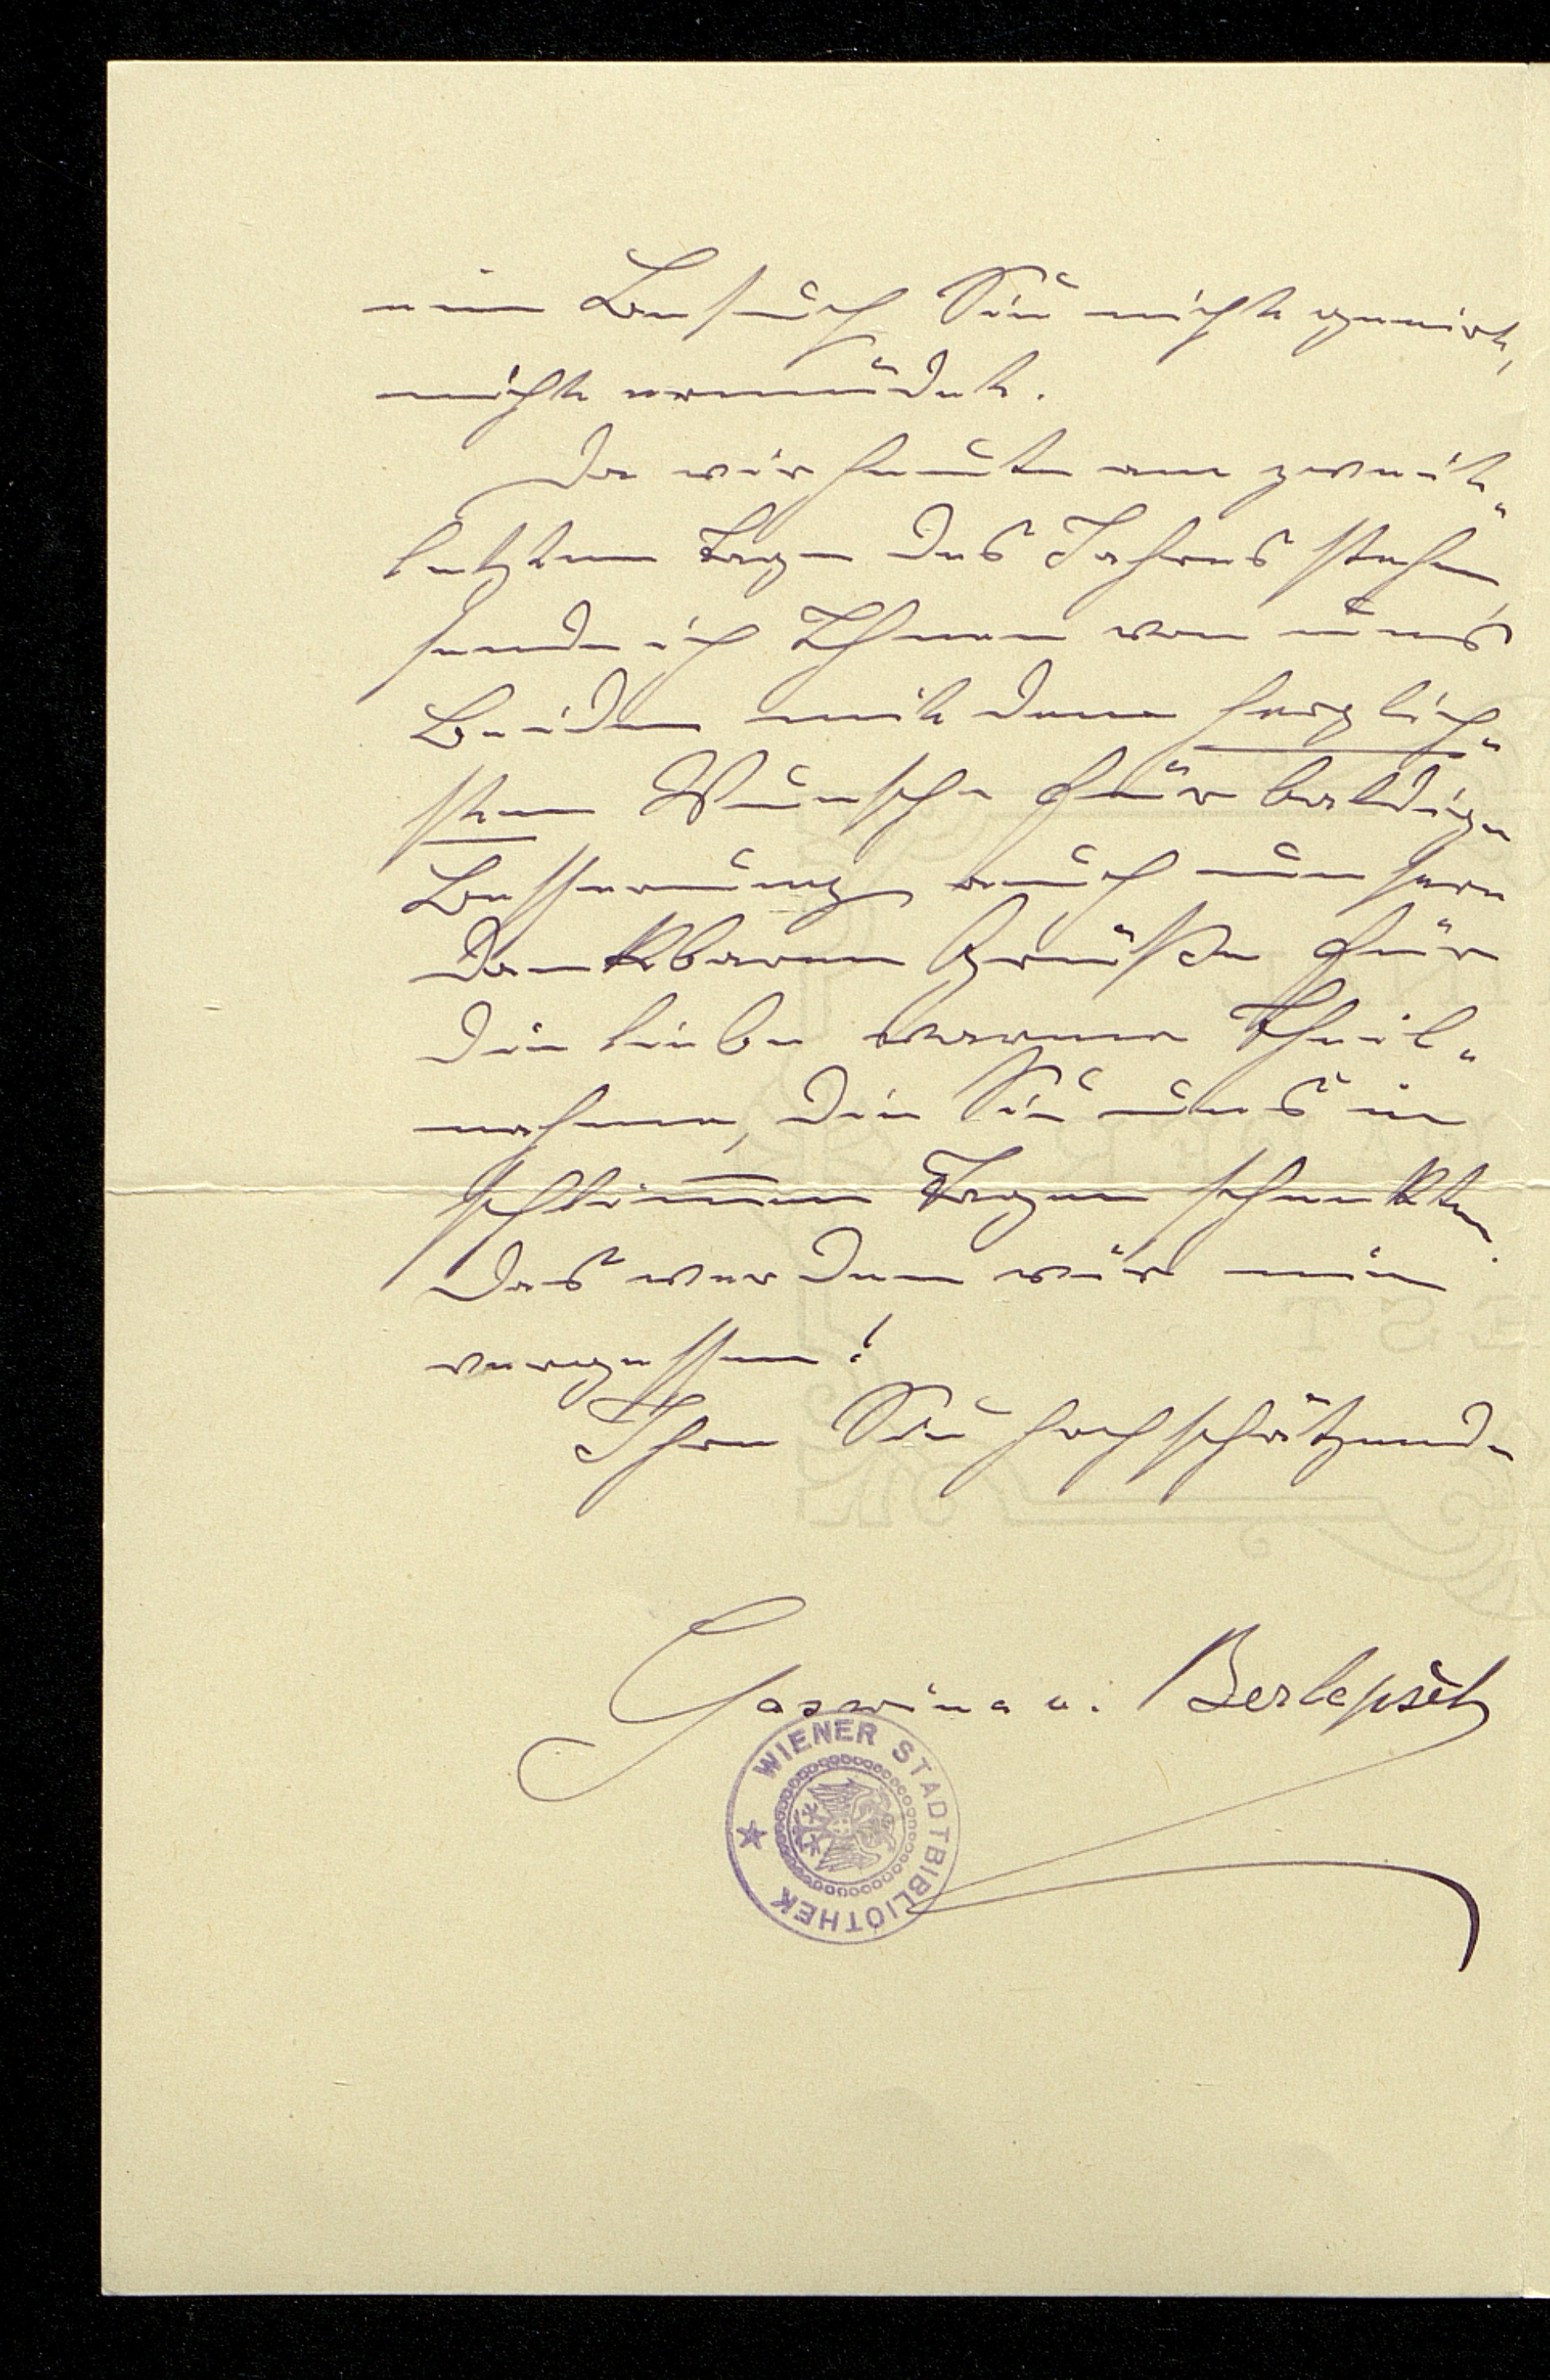 ein Besuch Sie nicht genirt,
nicht ermüdet.
Da wir heute am zweit-
letzten Tage des Jahres stehen,
sende ich Ihnen von uns
Beiden mit dem herzlich-
sten Wunsche für baldige
Besserung auch unsere
dankbaren Grüße für
die liebe warme Theil-
nahme, die Sie uns in
schlimmen Tagen schenkten.
Das werden wir nie
vergessen!
Ihre Sie hochschätzende
Goswina v. Berlepsch
WIENER STADTBIBLIOTHEK